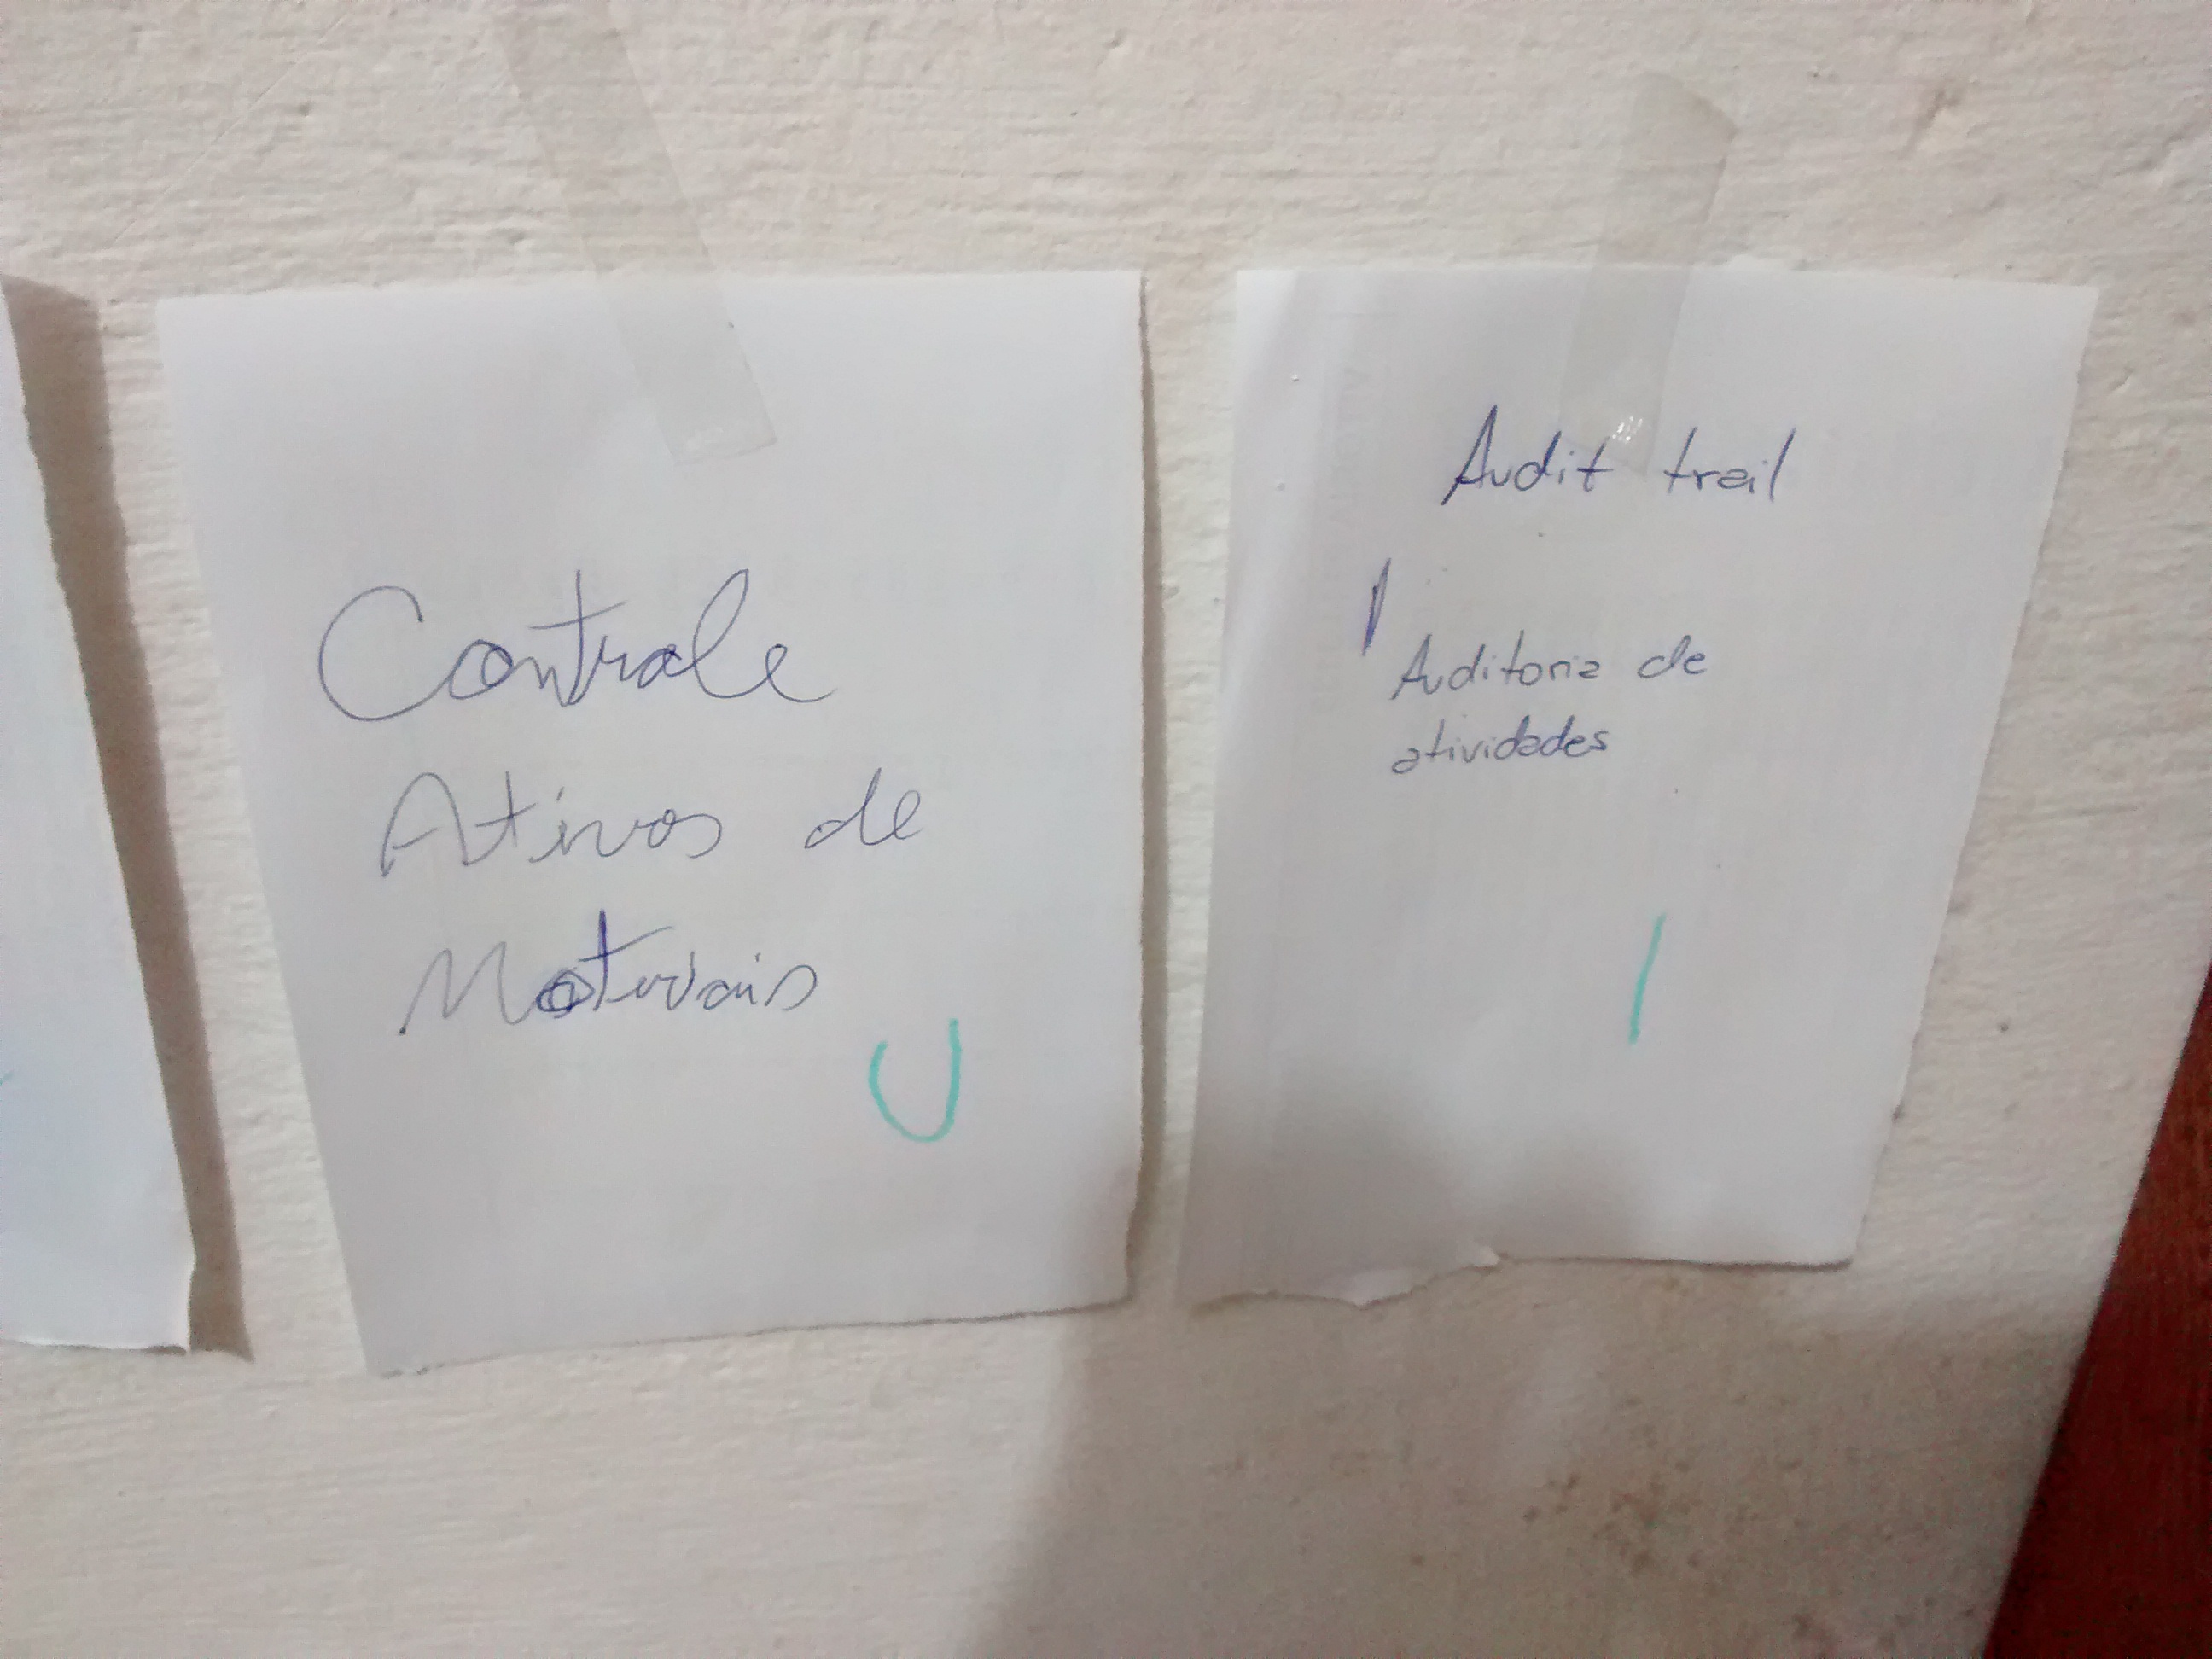 Controle
Ativos de
Materiais
U
Audit trail
Auditoria de
atividades
I